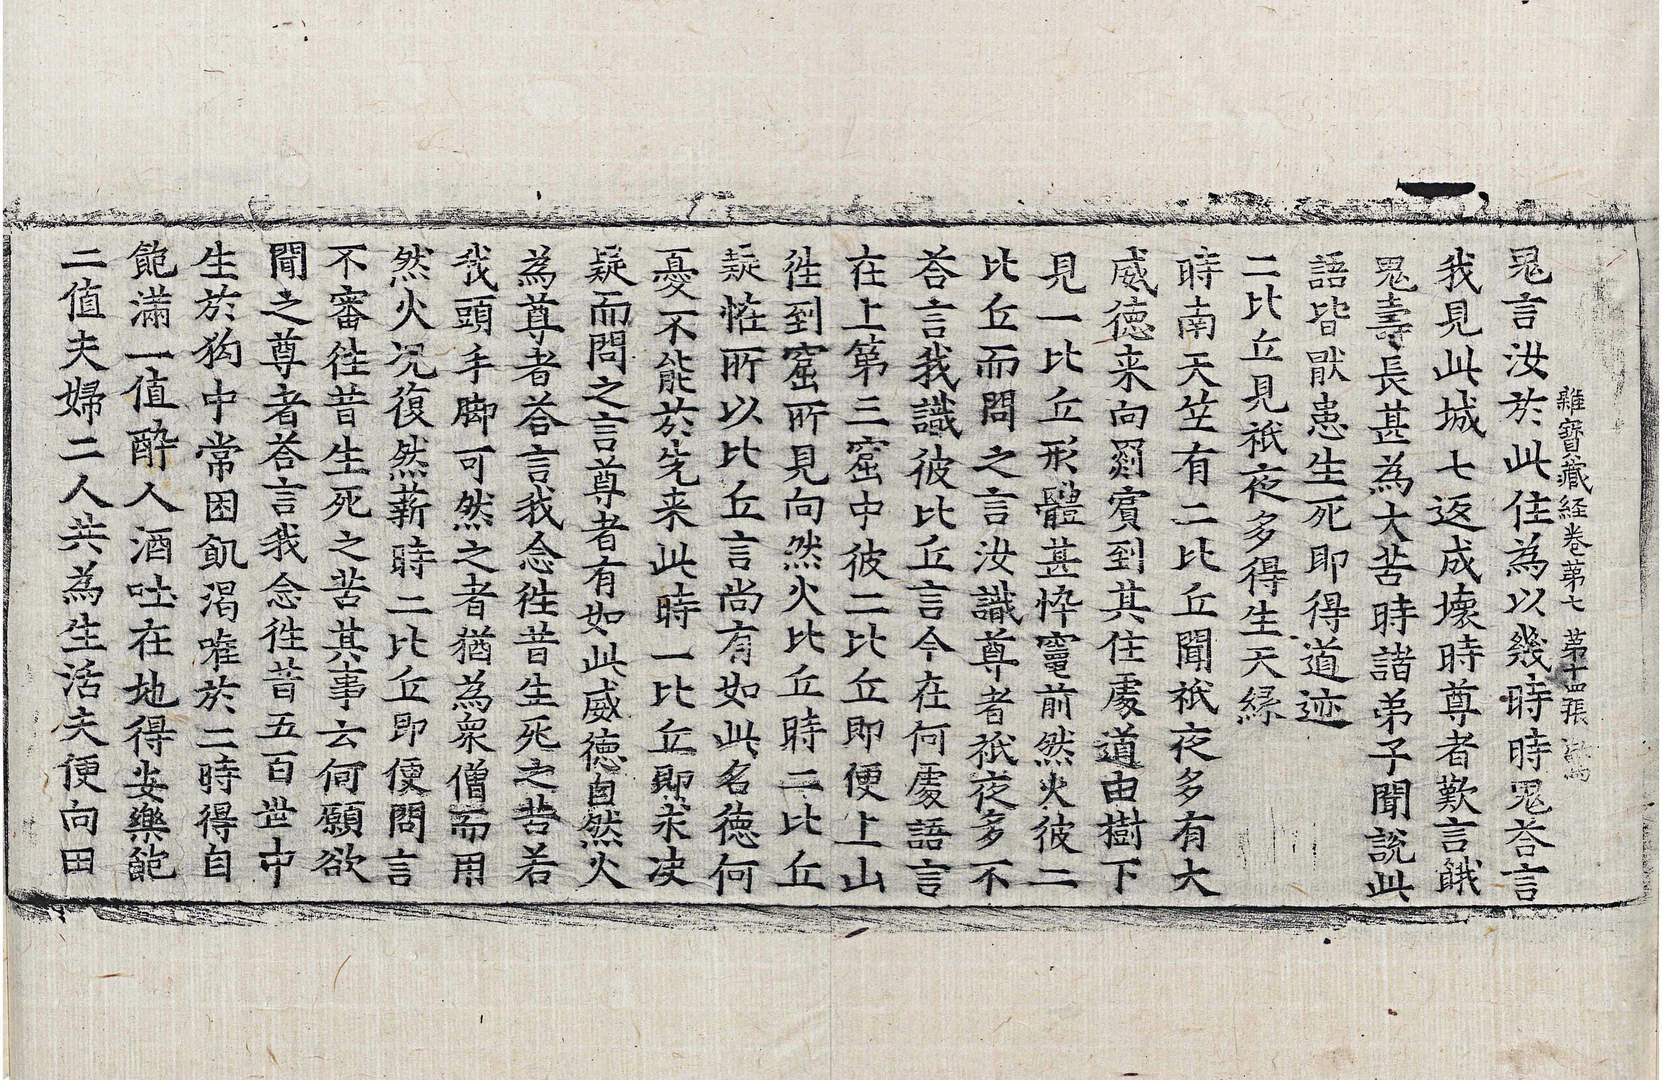 雜寶藏経卷苐七　苐十四張
鬼言汝於此住為以幾時時鬼荅言
我見此城七返成壞時尊者歎言餓
鬼壽長甚為大苦時諸弟子聞說此
語皆猒患生死即得道迹
二比丘見祇夜多得生天緣
時南天笁有二比丘聞祇夜多有大
威德来向罽賓到其住處道由樹下
見一比丘形體甚悴竈前然火彼二
比丘而問之言汝識尊者祇夜多不
荅言我識彼比丘言今在何處語言
在上第三窟中彼二比丘即便上山
徃到窟所見向然火比丘時二比丘
疑恠所以比丘言尚有如此名德何
憂不能於先来此時一比丘即求决
疑而問之言尊者有如此威德自然火
為尊者荅言我念徃昔生死之苦若
我頭手脚可然之者猶為衆僧而用
然火况復然薪時二比丘即便問言
不審徃昔生死之苦其事云何願欲
聞之尊者荅言我念徃昔五百世中
生於狗中常困飢渴唯於二時得自
飽滿一值酔人酒吐在地得安樂飽
二值夫婦二人共為生活夫便向田